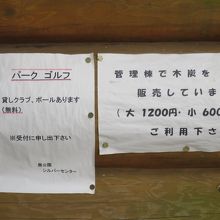 パーク ゴルフ
貸しクラブ、ボールあります
(無料)
※受付に申し出下さい
シルバーセンター
管理棟で木炭を
販売していま
(大 1200円・小 600
ご利用下さ